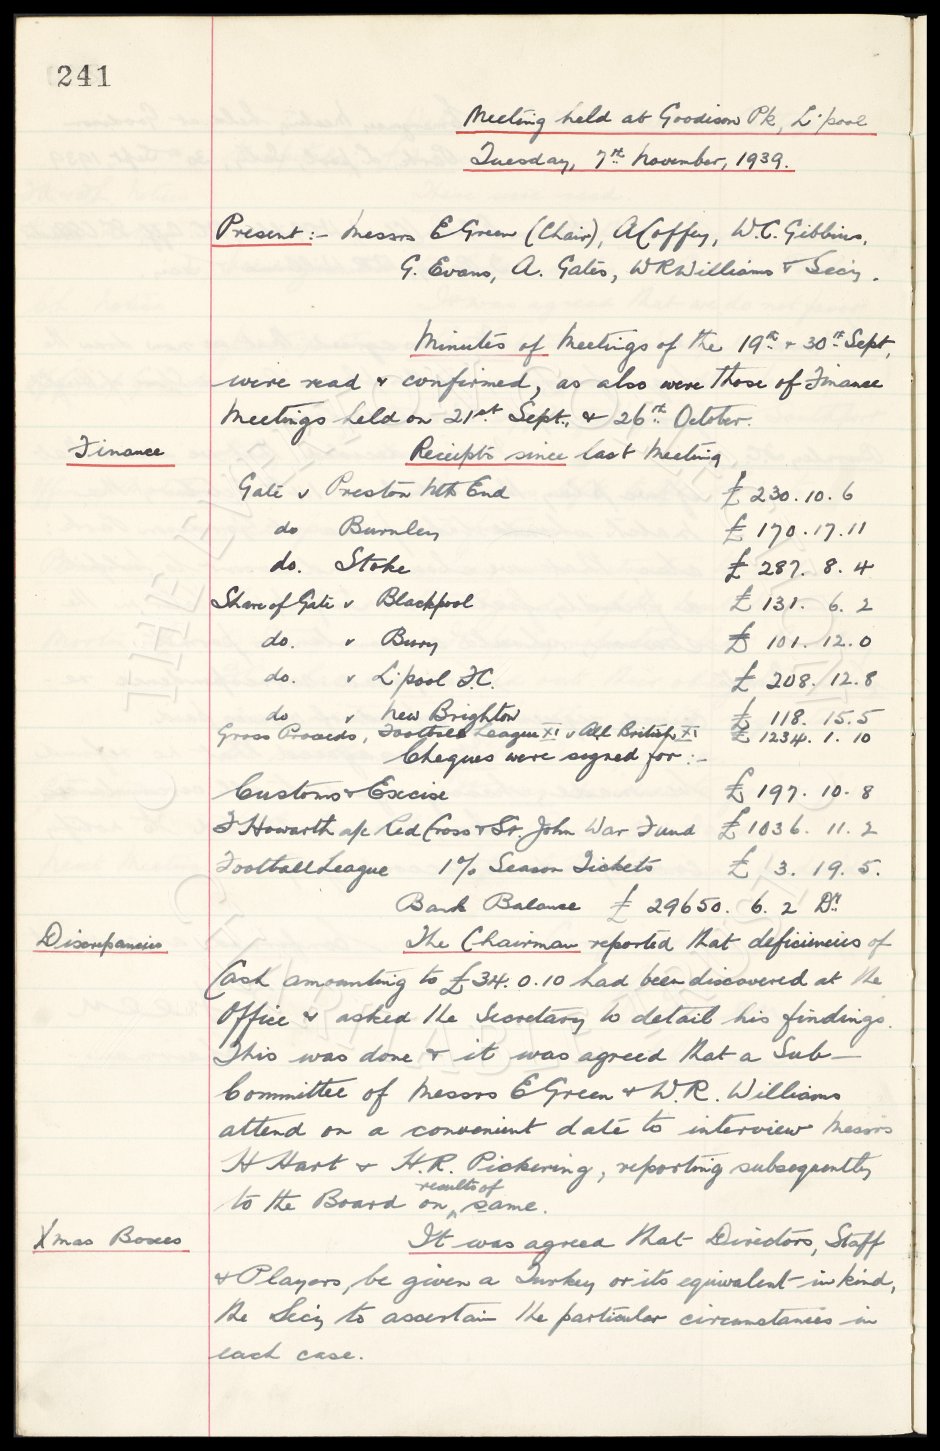 241
Meeting held at Goodison Pk, L'pool
Tuesday, 7th November, 1939.
Present :- Messrs E Green (Chair), A Coffey, W.C. Gibbins,
G. Evans, A. Gates, W R Williams & Secy.
Minutes of Meetings of the 19th & 30th Sept,
were read & confirmed, as also were those of Finance
Meetings held on 21st Sept., & 26th October.
Finance Receipts since last Meeting
Gate v Preston Nth End £ 230. 10. 6
do Burnley £ 170. 17. 11
do. Stoke £ 287. 8. 4
Share of Gate v Blackpool £ 131. 6. 2
do. v Bury £ 101. 12. 0
do. v L'pool F.C. £ 208. 12. 8
do v New Brighton £ 118. 15. 5
Gross Proceeds, Football League XI v All British XI £ 1234. 1. 10
Cheques were signed for :-
Customs & Excise £ 197. 10. 8
F Howarth a/c Red Cross & St. John War Fund £ 1036. 11. 2
Football League 1% Season Tickets £ 3. 19. 5.
Bank Balance £ 29650. 6. 2 Dr
Discrepancies The Chairman reported that deficiencies of
Cash amounting to £34. 0. 10 had been discovered at the
Office & asked the Secretary to detail his findings.
This was done & it was agreed that a Sub-
Committee of Messrs E Green & W.R. Williams
attend on a convenient date to interview Messrs
H Hart & H.R. Pickering, reporting subsequently
to the Board on results of same.
Xmas Boxes It was agreed that Directors, Staff
& Players, be given a Turkey or its equivalent in kind,
the Secy to ascertain the particular circumstances in
each case.